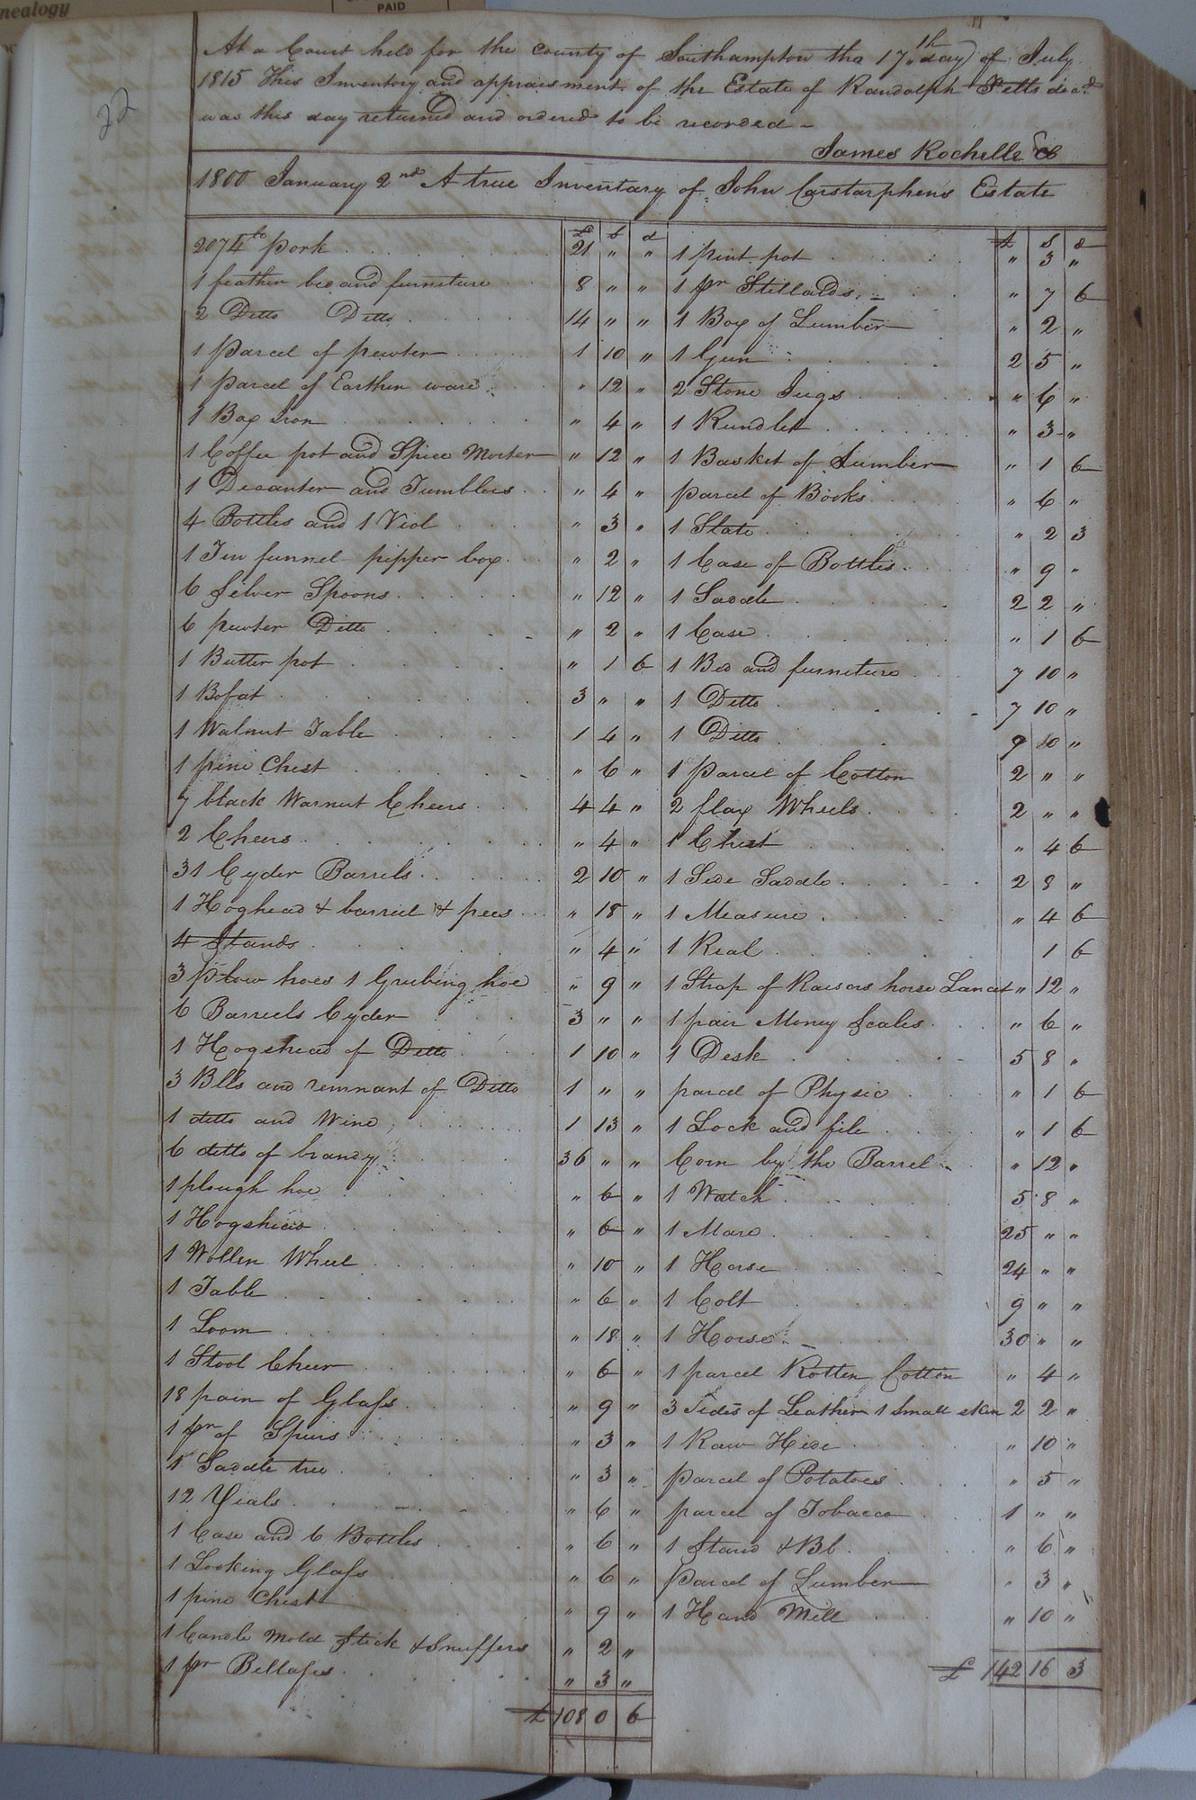 nealogy
PAID
22
At a Court held for the county of Southampton the 17th day of July
1815 This Inventory and appraisment of the Estate of Randolph Pitts dec.d
was this day returned and ordered to be recorded -
James Rochelle
1800 January 2nd A true Inventary of John Carstarphens Estate
£ s d
2074 lb pork 21 " "
1 feather bed and furniture 8 " "
2 Ditto Ditto 14 " "
1 parcel of pewter 1 10 "
1 parcel of Earthen ware " 12 "
1 Box Iron " 4 "
1 Coffee pot and Spice Morter " 12 "
1 Decanter and Tumblers " 4 "
4 Bottles and 1 Viol " 3 "
1 Tin funnel pepper box " 2 "
6 Silver Spoons " 12 "
6 pewter Ditto " 2 "
1 Butter pot " 1 6
1 Bofat 3 " "
1 Walnut Table 1 4 "
1 pine Chest " 6 "
7 black Warnut Cheers 4 4 "
2 Cheers " 4 "
31 Cyder Barrels 2 10 "
1 Hoghead & barriel & pees " 18 "
4 Stands " 4 "
3 plow hoes 1 Grubing hoe " 9 "
6 Barriels Cyder 3 " "
1 Hogshead of Ditto 1 10 "
3 Blls and remnant of Ditto 1 " "
1 ditto and Wine 1 13 "
6 ditto of brandy 36 " "
1 plough hoe " 6 "
1 Hogshead " 6 "
1 Wollen Wheel " 10 "
1 Table " 6 "
1 Loom " 18 "
1 Stool Cheer " 6 "
18 pain of Glass " 9 "
1 pr of Spurs " 3 "
1 Saddle tree " 3 "
12 Vials " 6 "
1 Case and 6 Bottles " 6 "
1 Looking Glass " 6 "
1 pine Chest " 9 "
1 Candle Mold Stick & Snuffers " 2 "
1 pr Bellases " 3 "
£ 108 0 6
£ s d
1 pint pot " 3 "
1 pr Stillards " 7 6
1 Box of Lumber " 2 "
1 Gun 2 5 "
2 Stone Jugs " 6 "
1 Rundlet " 3 "
1 Basket of Lumber " 1 6
parcel of Books " 6 "
1 Slate " 2 3
1 Case of Bottles " 9 "
1 Saddle 2 2 "
1 Case " 1 6
1 Bed and furniture 7 10 "
1 Ditto 7 10 "
1 Ditto 9 10 "
1 parcel of Cotton 2 " "
2 flax Wheels 2 " "
1 Chest " 4 6
1 Side Saddle 2 8 "
1 Measure " 4 6
1 Real 1 6
1 Strap of Raisors horse Lancet " 12 "
1 pair Money Scales " 6 "
1 Desk 5 8 "
parcel of Physic " 1 6
1 Lock and file " 1 6
Corn by the Barrel " 12 "
1 Watch 5 8 "
1 Mare 25 " "
1 Horse 24 " "
1 Colt 9 " "
1 Horse 30 " "
1 parcel Rotten Cotton " 4 "
3 Sides of Leather 1 Small skin 2 2 "
1 Raw Hide " 10 "
parcel of Potatoes " 5 "
parcel of Tobacco 1 " "
1 Stand & Bb. " 6 "
Parcel of Lumber " 3 "
1 Hand Mill " 10 "
£ 142 16 3